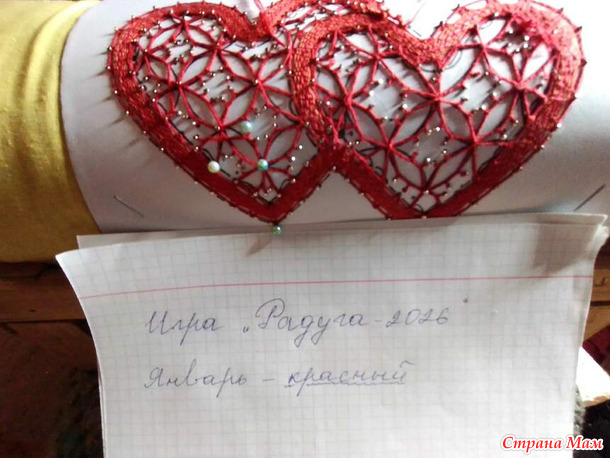 Игра „Радуга-2026"
Январь - красный
Страна Мам